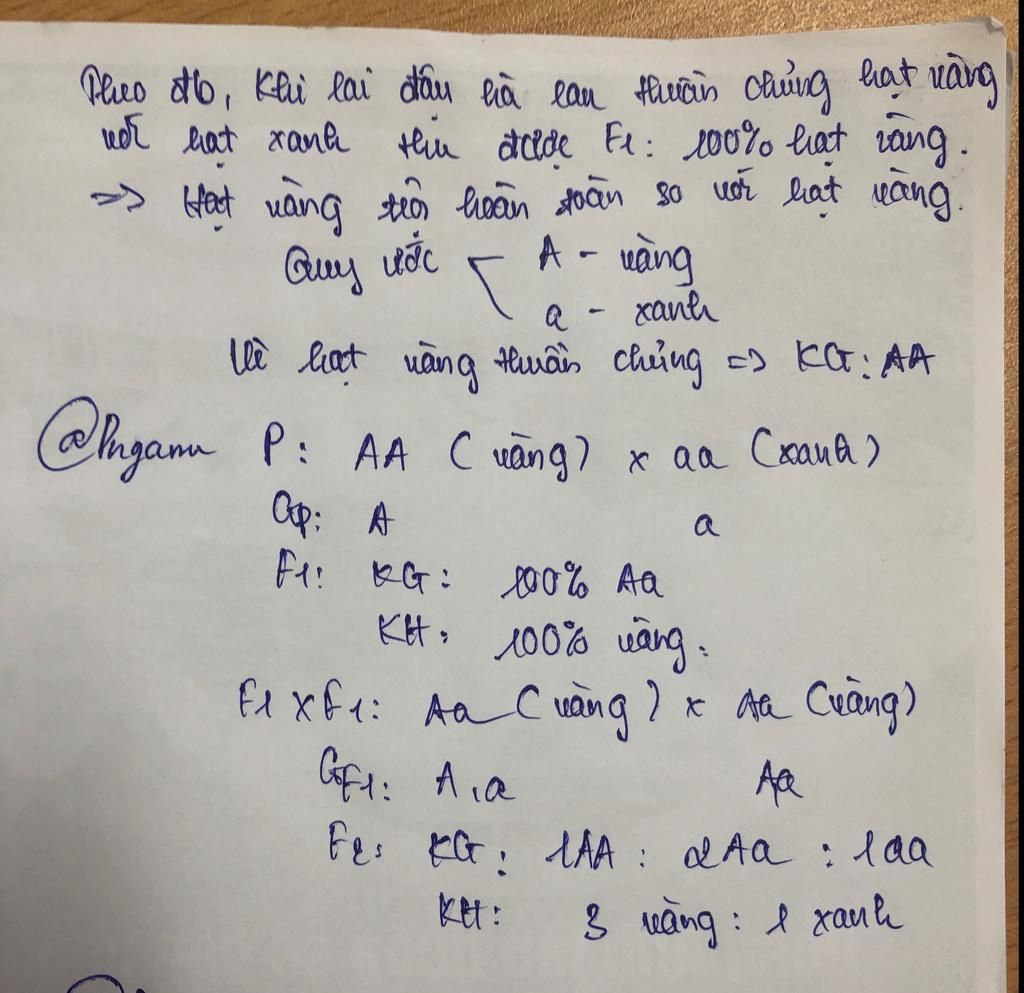 Theo đb, Khi lai đậu hà lan thuần chủng hạt vàng
với hạt xanh thu được F1: 100% hạt vàng.
=> Hạt vàng trội hoàn toàn so với hạt vàng.
Quy ước A - vàng
a - xanh
Vì hạt vàng thuần chủng => KG: AA
@Pngann P: AA (vàng) x aa (xanh)
Gp: A a
F1: KG: 100% Aa
KH: 100% vàng.
F1 x F1: Aa (vàng) x Aa (vàng)
GF1: A, a A,a
F2: KG: 1AA : 2Aa : 1aa
KH: 3 vàng : 1 xanh